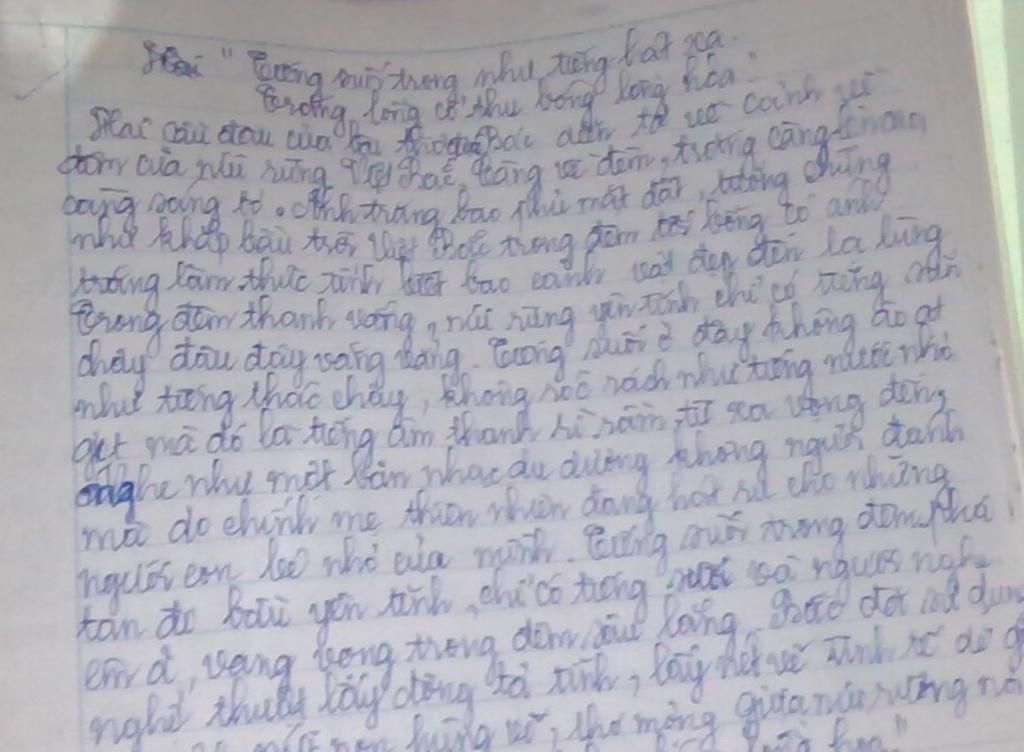 "Tiếng suối trong như tiếng hát xa.
Trăng lồng cổ thụ bóng lồng hoa."
Hai câu đầu của bài thơ Bác diễn tả về cảnh về
đêm của núi rừng Việt Bắc, càng về đêm, trăng càng
càng sáng tỏ. Ánh trăng bao phủ mặt đất, tưởng chừng
như khắp bầu trời Việt Bắc trong đêm có ánh
trăng làm thức tỉnh bao cảnh vật đẹp đến lạ lùng
Trong đêm thanh vắng, núi rừng yên tĩnh chỉ có tiếng suối
chảy đâu đây vang vẳng. Tiếng suối ở đây không ào ạt
như tiếng thác chảy, không róc rách như tiếng nước nhỏ
giọt mà đó là tiếng âm thanh rì rầm, từ xa vọng đến,
nghe như một bản nhạc du dương không người đánh
mà do chính mẹ thiên nhiên đang hát ru cho những
người con bé nhỏ của mình. Tiếng suối trong đêm phá
tan đi bầu yên tĩnh, chỉ có tiếng suối và người nghe
êm ả, vang vọng trong đêm sâu lắng. Bác đã sử dụng
nghệ thuật lấy động tả tĩnh, lấy nét vẽ tinh tế để
hùng vĩ, thơ mộng giữa núi rừng